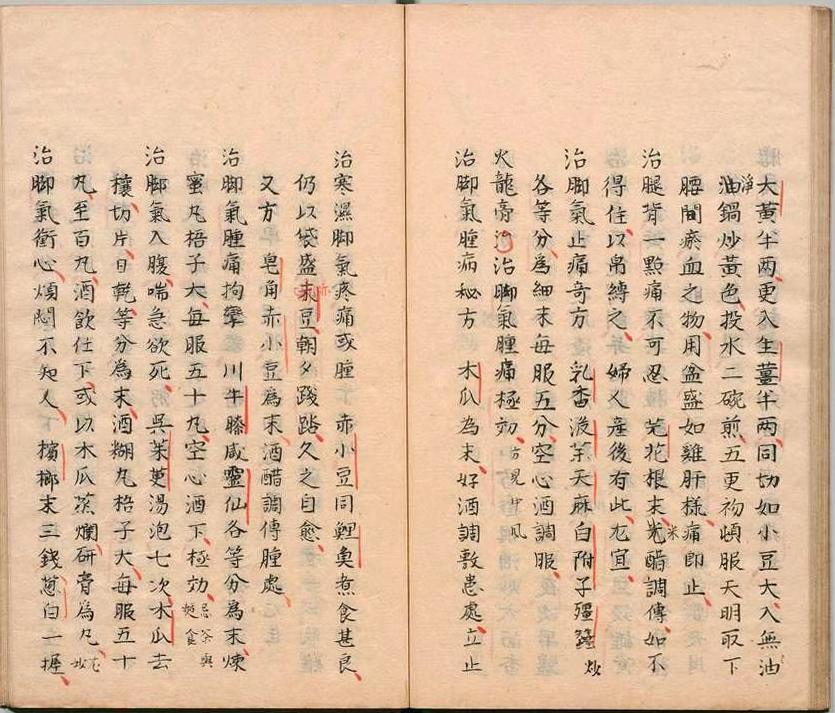 大黃半兩更入生薑半兩同切如小豆大入無油
淨
油鍋炒黃色投水二碗煎五更初頓服天明取下
腰間瘀血之物用盆盛如雞肝樣痛即止
治腿背一點痛不可忍 芫花根末米醋調傅如不
得住以帛縛之婦人產後有此尤宜
治脚氣止痛奇方 乳香沒藥天麻白附子殭蠶炒
各等分為細末每服五分空心酒調服
火龍膏 治脚氣腫痛極効方見中風
治脚氣腫痛秘方 木瓜為末好酒調敷患處立止
治寒濕脚氣疼痛或腫下 赤小豆同鯉魚煮食甚良
仍以袋盛赤豆朝夕踐踏久之自愈
又方 皂角赤小豆為末酒醋調傅腫處
治脚氣腫痛拘攣 川牛膝威靈仙各等分為末煉
蜜丸梧子大每服五十丸空心酒下極効忌茶與麪食
治脚氣入腹喘急欲死 吳茱萸湯泡七次木瓜去
穰切片日乾等分為末酒糊丸梧子大每服五十
丸至百丸酒飲任下或以木瓜蒸爛研膏為丸尤妙
治脚氣衝心煩悶不知人 檳榔末三錢葱白一握